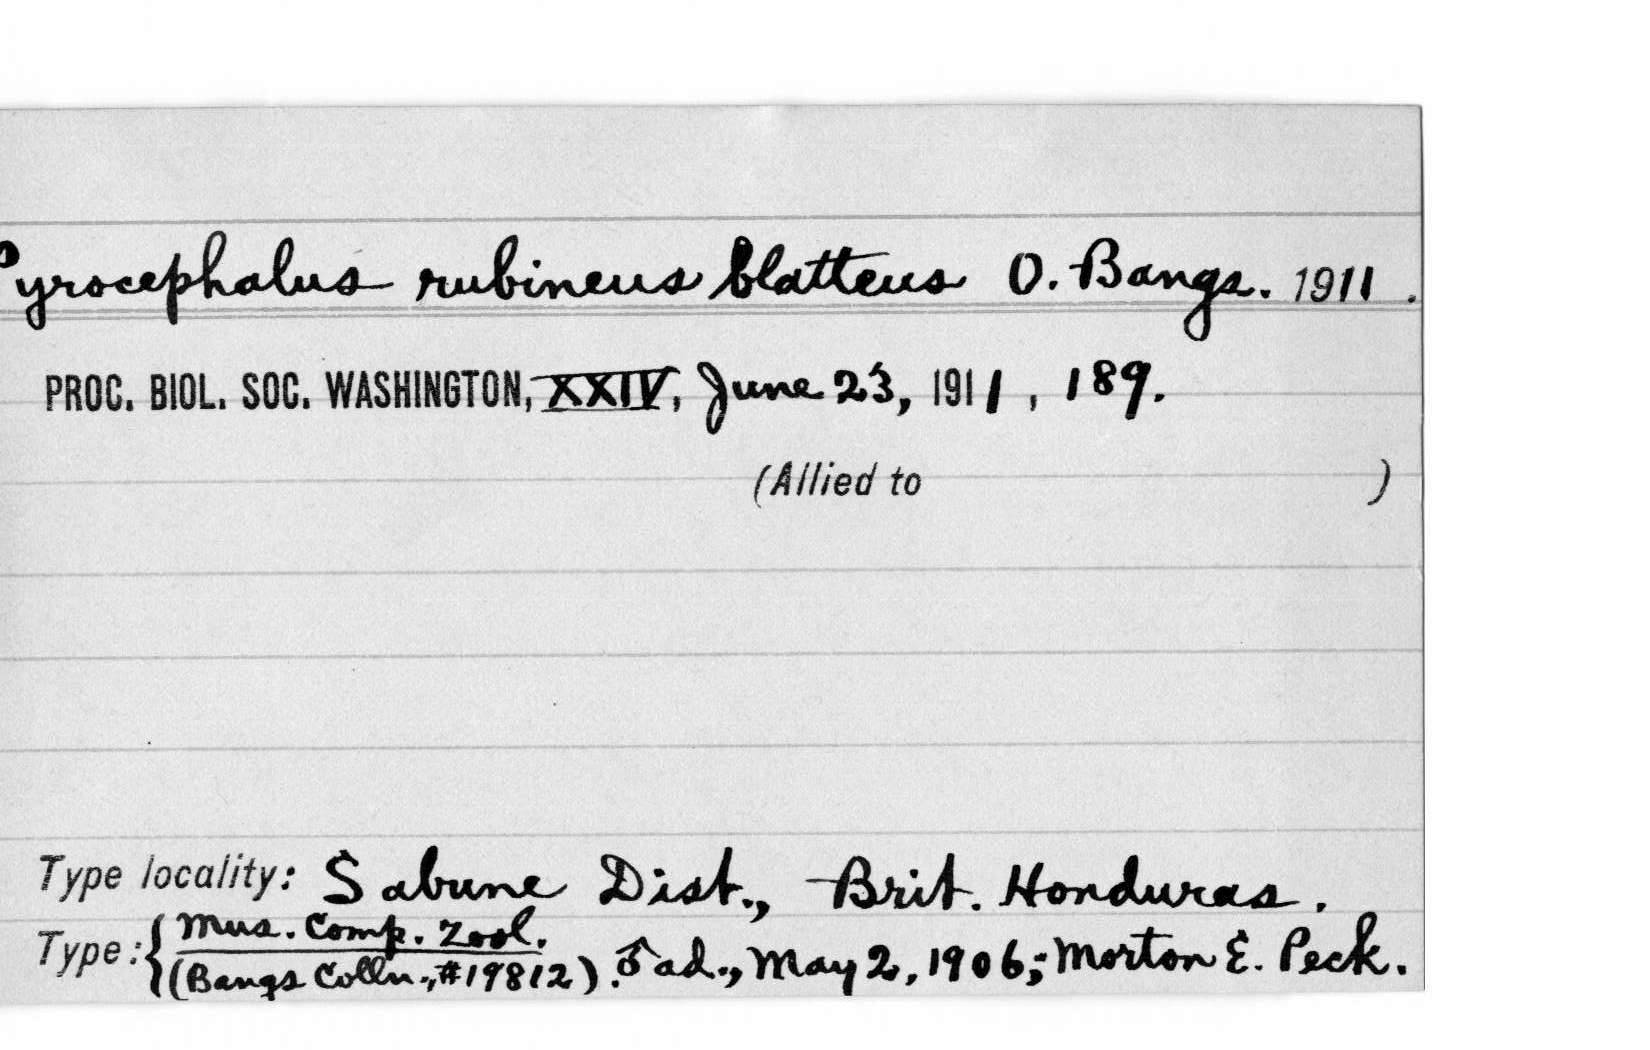 Pyrocephalus rubineus blatteus O. Bangs. 1911.
PROC. BIOL. SOC. WASHINGTON, XXIV, June 23, 1911, 189.
(Allied to )
Type locality: Sabune Dist., Brit. Honduras.
Type: { Mus. Comp. Zool.
(Bangs Colln., #19812). ♂ ad., May 2, 1906; Morton E. Peck.